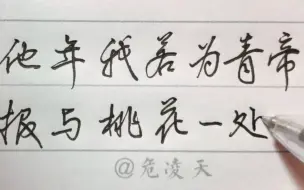 他年我若为青帝
报与桃花一处
@危凌天